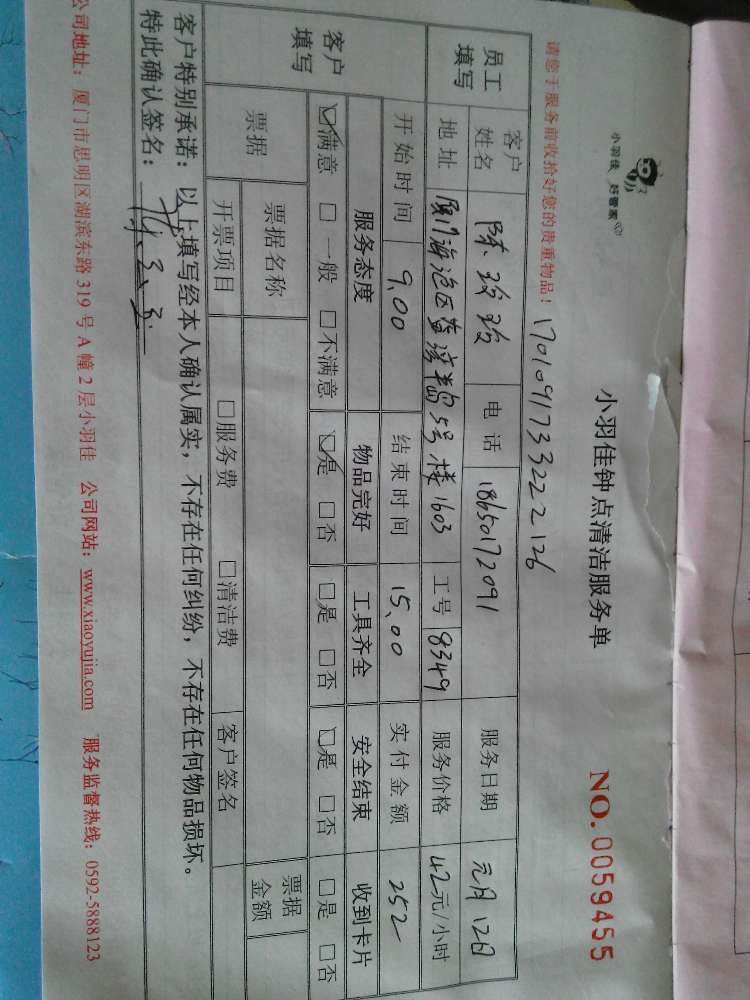 小羽佳 好管家
小羽佳钟点清洁服务单
NO. 0059455
请您于服务前收拾好您的贵重物品！ 17010917332222126
员工填写 客户姓名 陈 电话 18650172091 服务日期 元月12日
地址 厦门海沧区蓝湾半岛5号楼1603 工号 8349 服务价格 42元/小时
客户填写 开始时间 9.00 结束时间 15.00 实付金额 252
服务态度 物品完好 工具齐全 安全结束 收到卡片
☑满意 □一般 □不满意 ☑是 □否 □是 □否 □是 □否 □是 □否
票据 票据名称 票据金额
开票项目 □服务费 □清洁费 客户签名
客户特别承诺：以上填写经本人确认属实，不存在任何纠纷，不存在任何物品损坏。
特此确认签名：
公司地址：厦门市思明区湖滨东路 319 号 A 幢 2 层小羽佳 公司网站：www.xiaoyujia.com 服务监督热线：0592-5888123